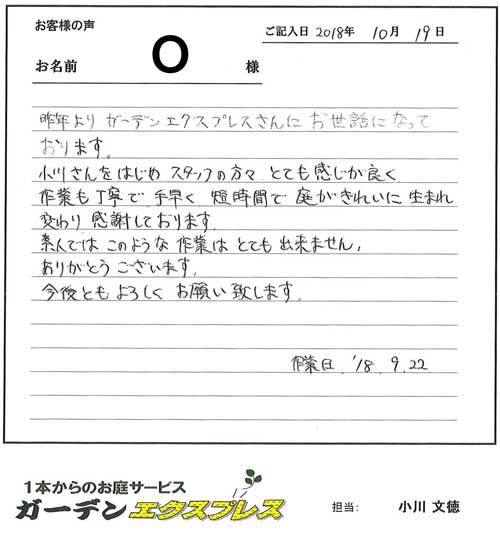 お客様の声
ご記入日 2018年 10月 19日
お名前 O 様
昨年より ガーデンエクスプレスさんに お世話になって
おります。
小川さんをはじめ スタッフの方々 とても感じが良く
作業も丁寧で 手早く 短時間で 庭がきれいに 生まれ
変わり 感謝しております。
素人では このような 作業は とても 出来ません。
ありがとう ございます。
今後とも よろしく お願い致します。
作業日 '18. 9. 22
1本からのお庭サービス
ガーデンエクスプレス
担当: 小川 文徳